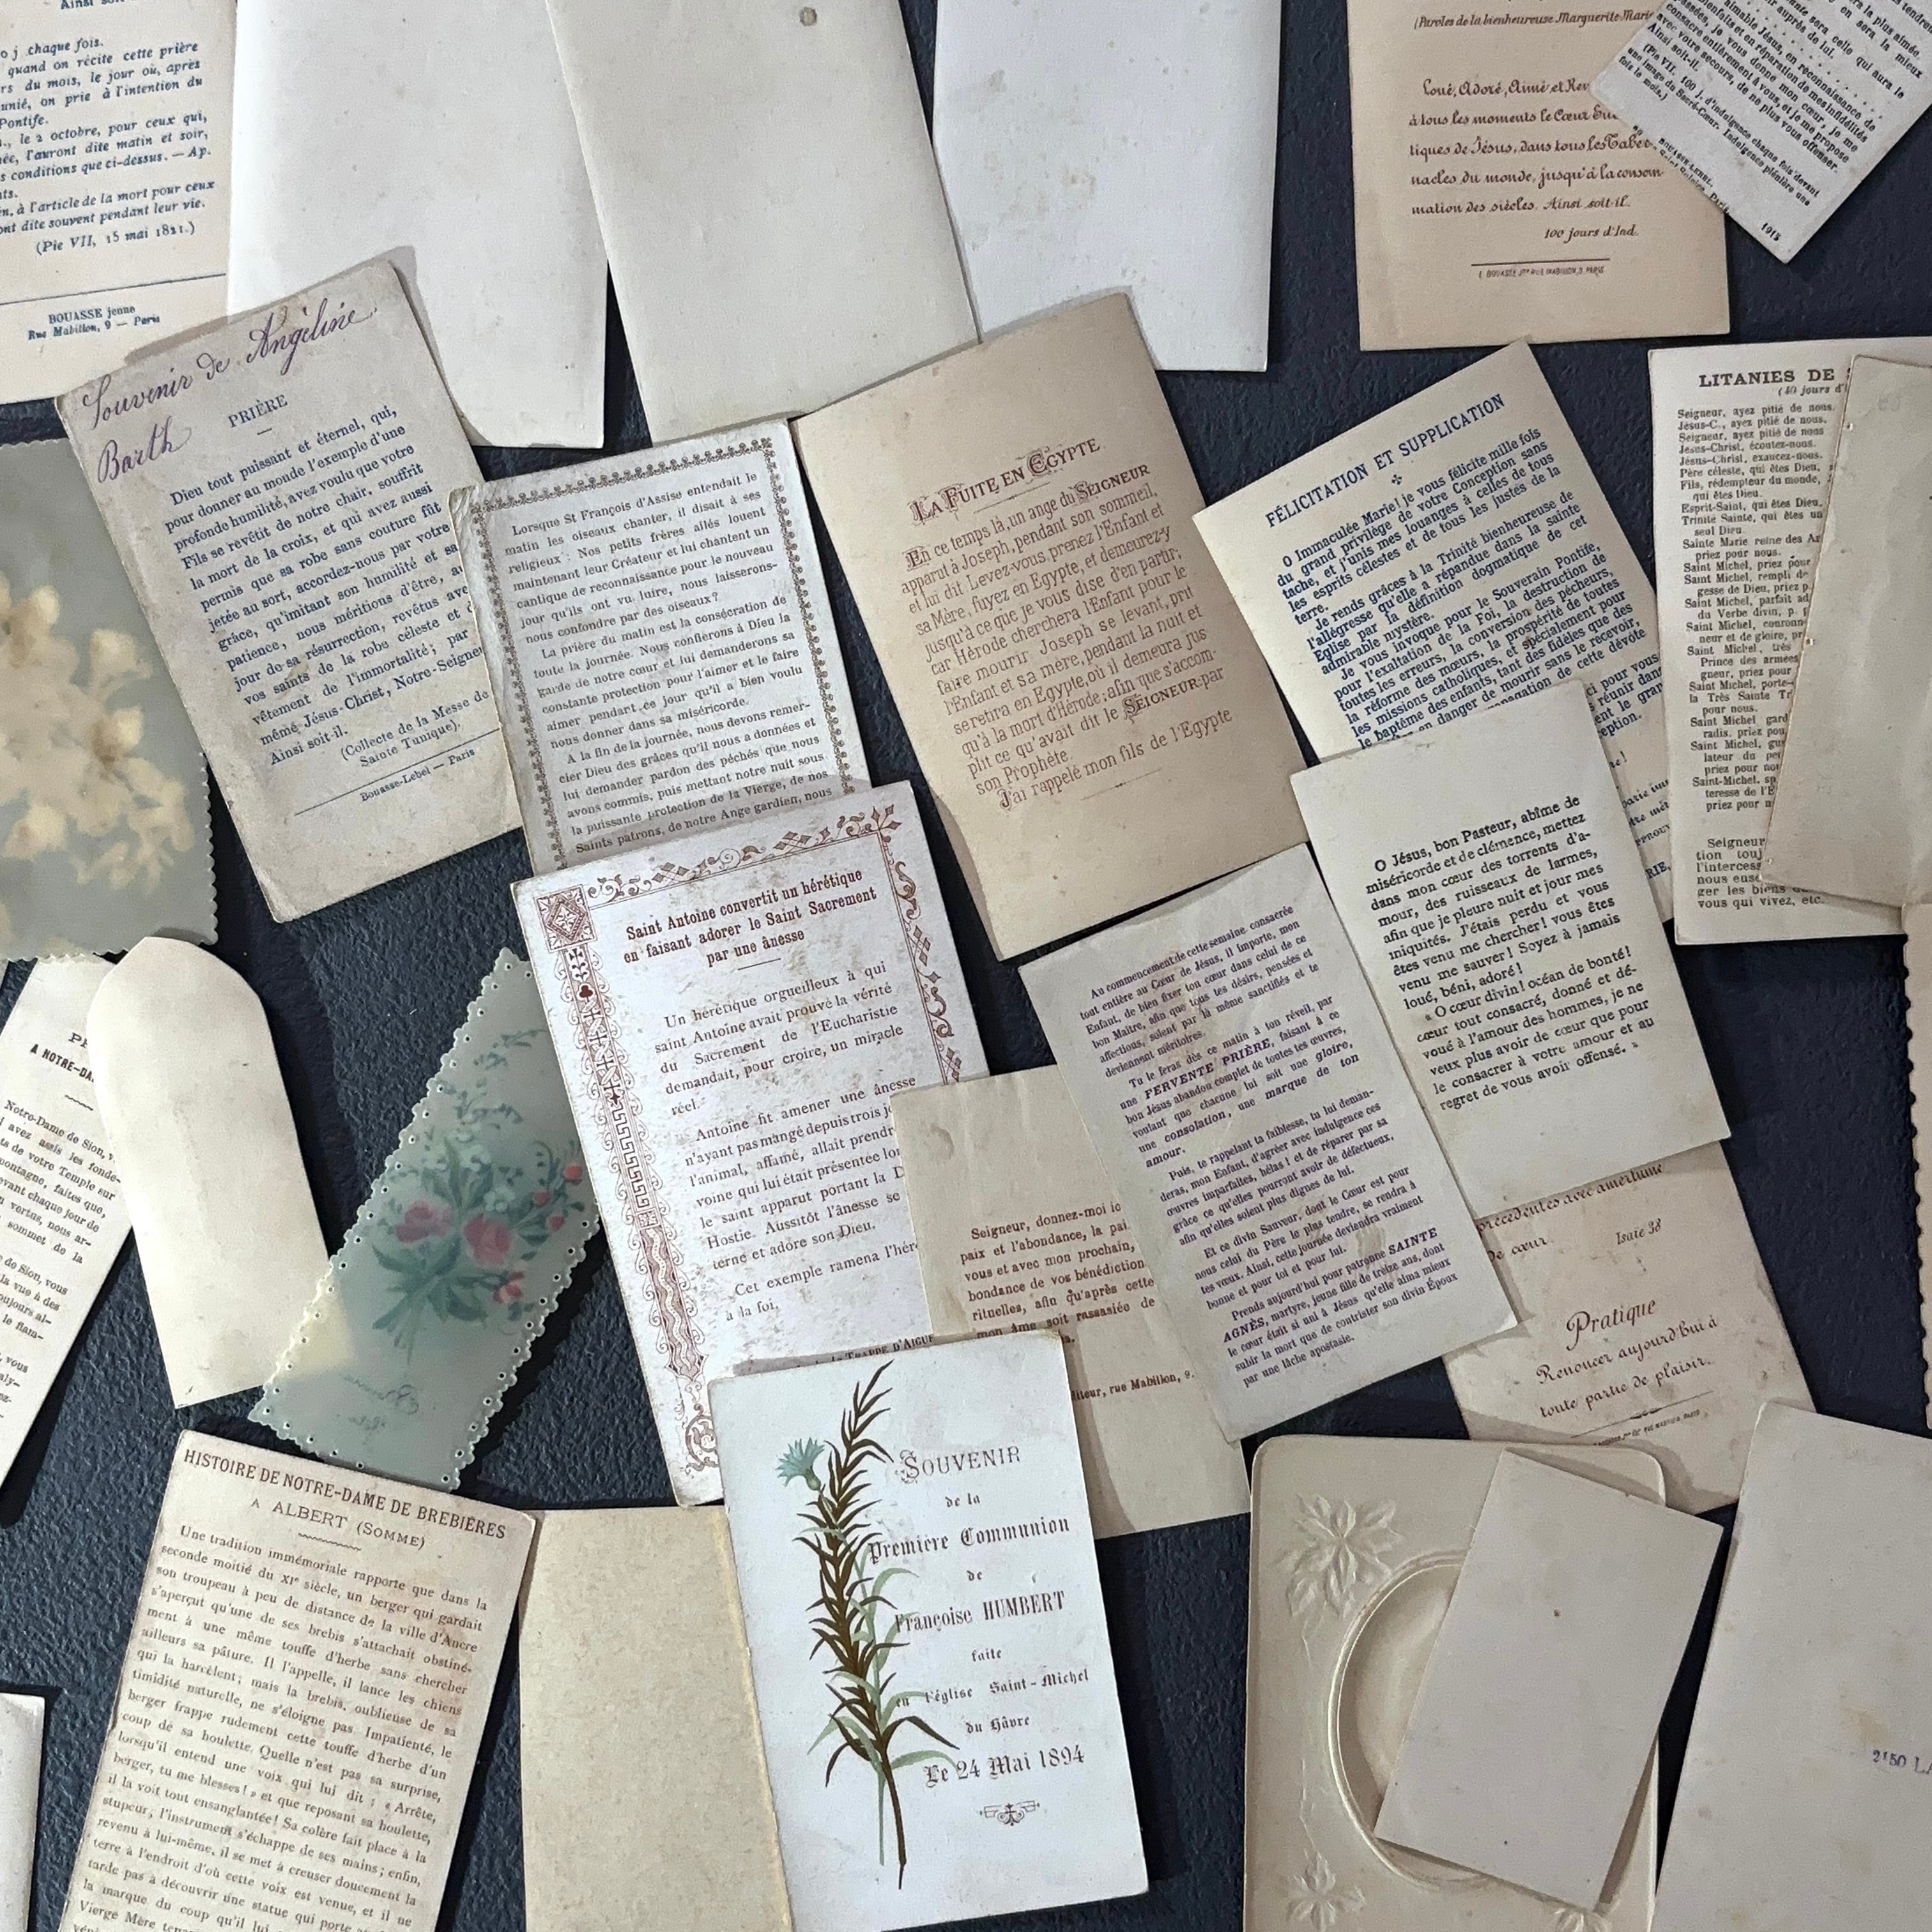 Ainsi soit
o j. chaque fois.
quand on récite cette prière
rs du mois, le jour où, après
unié, on prie à l'intention du
Pontife.
., le 2 octobre, pour ceux qui,
née, l'auront dite matin et soir,
s conditions que ci-dessus. — Ap.
ts.
n, à l'article de la mort pour ceux
ont dite souvent pendant leur vie.
(Pie VII, 15 mai 1821.)
BOUASSE jeune
Rue Mabillon, 9 — Paris
(Paroles de la bienheureuse Marguerite-Marie
Loué, Adoré, Aimé et Rem
à tous les moments le Cœur Euc
tiques de Jésus, dans tous les Taber-
nacles du monde, jusqu'à la consom-
mation des siècles. Ainsi soit-il.
100 jours d'Ind.
sera la plus aimée
ente sera celle qui aura le
ur auprès de lui.
aimable Jésus, en reconnaissance de
bienfaits et en réparation de mes infidélités
passées, je vous donne mon cœur, je me
consacre entièrement à vous, et je me propose
avec votre secours, de ne plus vous offenser.
Ainsi soit-il.
(Pie VII. 100 j. d'indulgence chaque fois devant
une image du Sacré-Cœur. Indulgence plénière une
fois le mois.)
BOUASSE-LEBEL
1915
Souvenir de Angéline
Barth
PRIÈRE
Dieu tout puissant et éternel, qui,
pour donner au monde l'exemple d'une
profonde humilité, avez voulu que votre
Fils se revêtit de notre chair, souffrit
la mort de la croix, et qui avez aussi
permis que sa robe sans couture fût
jetée au sort, accordez-nous par votre
grâce, qu'imitant son humilité et sa
patience, nous méritions d'être, au
jour de sa résurrection, revêtus ave
vos saints de la robe céleste et d
vêtement de l'immortalité; par
même Jésus-Christ, Notre-Seigneu
Ainsi soit-il.
(Collecte de la Messe de
Sainte Tunique).
Bouasse-Lebel — Paris
Lorsque St François d'Assise entendait le
matin les oiseaux chanter, il disait à ses
religieux : Nos petits frères ailés louent
maintenant leur Créateur et lui chantent un
cantique de reconnaissance pour le nouveau
jour qu'ils ont vu luire, nous laisserons-
nous confondre par des oiseaux?
La prière du matin est la consécration de
toute la journée. Nous confierons à Dieu la
garde de notre cœur et lui demanderons sa
constante protection pour l'aimer et le faire
aimer pendant ce jour qu'il a bien voulu
nous donner dans sa miséricorde.
A la fin de la journée, nous devons remer-
cier Dieu des grâces qu'il nous a données et
lui demander pardon des péchés que nous
avons commis, puis mettant notre nuit sous
la puissante protection de la Vierge, de nos
Saints patrons, de notre Ange gardien, nous
LA FUITE EN EGYPTE
En ce temps là, un ange du SEIGNEUR
apparut à Joseph, pendant son sommeil,
et lui dit Levez-vous, prenez l'Enfant et
sa Mère, fuyez en Egypte, et demeurez-y
jusqu'à ce que je vous dise d'en partir;
car Hérode cherchera l'Enfant pour le
faire mourir Joseph se levant, prit
l'Enfant et sa mère, pendant la nuit et
se retira en Egypte, où il demeura jus
qu'à la mort d'Hérode; afin que s'accom-
plit ce qu'avait dit le SEIGNEUR par
son Prophète.
J'ai rappelé mon fils de l'Egypte
FÉLICITATION ET SUPPLICATION
O Immaculée Marie! je vous félicite mille fois
du grand privilège de votre Conception sans
tache, et j'unis mes louanges à celles de tous
les esprits célestes et de tous les justes de la
terre.
Je rends grâces à la Trinité bienheureuse de
l'allégresse qu'elle a répandue dans la sainte
Eglise par la définition dogmatique de cet
admirable mystère.
Je vous invoque pour le Souverain Pontife,
pour l'exaltation de la Foi, la destruction de
toutes les erreurs, la conversion des pécheurs,
la réforme des mœurs, la prospérité de toutes
les missions catholiques, et spécialement pour
le baptême des enfants, tant des fidèles que des
en danger de mourir sans le recevoir,
pagation de cette dévote
ci pour vous
réunir dans
ent le gran
eption.
LITANIES DE
(40 jours d'
Seigneur, ayez pitié de nous.
Jésus-C., ayez pitié de nous
Seigneur, ayez pitié de nous
Jésus-Christ, écoutez-nous.
Jésus-Christ, exaucez-nous.
Père céleste, qui êtes Dieu,
Fils, rédempteur du monde,
qui êtes Dieu.
Esprit-Saint, qui êtes Dieu,
Trinité Sainte, qui êtes un
seul Dieu.
Sainte Marie reine des An
priez pour nous.
Saint Michel, priez pour
Saint Michel, rempli de
gesse de Dieu, priez p.
Saint Michel, parfait ad
du Verbe divin, p. p
Saint Michel, couronn
neur et de gloire, pr
Saint Michel, très
Prince des armées
gneur, priez pour
Saint Michel, porte-
la Très Sainte Tr
pour nous.
Saint Michel gard
radis. priez pou
Saint Michel, gu
lateur du pe
priez pour no
Saint-Michel, sp
teresse de l'E
priez pour n
Seigneur
tion touj
l'intercess
nous ense
ger les biens
vous qui vivez, etc.
O Jésus, bon Pasteur, abîme de
miséricorde et de clémence, mettez
dans mon cœur des torrents d'a-
mour, des ruisseaux de larmes,
afin que je pleure nuit et jour mes
iniquités. J'étais perdu et vous
êtes venu me chercher! vous êtes
venu me sauver! Soyez à jamais
loué, béni, adoré!
« O cœur divin! océan de bonté!
cœur tout consacré, donné et dé-
voué à l'amour des hommes, je ne
veux plus avoir de cœur que pour
le consacrer à votre amour et au
regret de vous avoir offensé. »
Saint Antoine convertit un hérétique
en faisant adorer le Saint Sacrement
par une ânesse
Un hérétique orgueilleux à qui
saint Antoine avait prouvé la vérité
du Sacrement de l'Eucharistie
demandait, pour croire, un miracle
réel.
Antoine fit amener une ânesse
n'ayant pas mangé depuis trois jo
l'animal, affamé, allait prendr
voine qui lui était présentée lor
le saint apparut portant la D
Hostie. Aussitôt l'ânesse se
terne et adore son Dieu.
Cet exemple ramena l'héré
à la foi.
la TRAPPE D'AIGUE
Au commencement de cette semaine consacrée
tout entière au Cœur de Jésus, il importe, mon
Enfant, de bien fixer ton cœur dans celui de ce
bon Maître, afin que tous tes désirs, pensées et
affections, soient par là même sanctifiés et te
deviennent méritoires.
Tu le feras dès ce matin à ton réveil, par
une FERVENTE PRIÈRE, faisant à ce
bon Jésus abandon complet de toutes tes œuvres,
voulant que chacune lui soit une gloire,
une consolation, une marque de ton
amour.
Puis, te rappelant ta faiblesse, tu lui deman-
deras, mon Enfant, d'agréer avec indulgence ces
œuvres imparfaites, hélas! et de réparer par sa
grâce ce qu'elles pourront avoir de défectueux,
afin qu'elles soient plus dignes de lui.
Et ce divin Sauveur, dont le Cœur est pour
nous celui du Père le plus tendre, se rendra à
tes vœux. Ainsi, cette journée deviendra vraiment
bonne et pour toi et pour lui.
Prends aujourd'hui pour patronne SAINTE
AGNÈS, martyre, jeune fille de treize ans, dont
le cœur était si uni à Jésus qu'elle aima mieux
subir la mort que de contrister son divin Époux
par une lâche apostasie.
Seigneur, donnez-moi ic
paix et l'abondance, la pai
vous et avec mon prochain,
bondance de vos bénédiction
rituelles, afin qu'après cette
mon âme soit rassasiée de
diteur, rue Mabillon, 9.
précédentes avec amertume
de cœur.
Isaïe 38
Pratique
Renoncer aujourd'hui à
toute partie de plaisir.
A NOTRE-DA
Notre-Dame de Sion, v
i avez assis les fonde-
ts de votre Temple sur
montagne, faites que,
evant chaque jour de
vertus, nous ar-
sommet de la
de Sion, vous
la vue à des
oujours al-
le flam-
vous
HISTOIRE DE NOTRE-DAME DE BREBIÈRES
A ALBERT (SOMME)
Une tradition immémoriale rapporte que dans la
seconde moitié du XIe siècle, un berger qui gardait
son troupeau à peu de distance de la ville d'Ancre
s'aperçut qu'une de ses brebis s'attachait obstiné-
ment à une même touffe d'herbe sans chercher
ailleurs sa pâture. Il l'appelle, il lance les chiens
qui la harcèlent; mais la brebis, oublieuse de sa
timidité naturelle, ne s'éloigne pas Impatienté, le
berger frappe rudement cette touffe d'herbe d'un
coup de sa houlette. Quelle n'est pas sa surprise,
lorsqu'il entend une voix qui lui dit : « Arrête,
berger, tu me blesses! » et que reposant sa houlette,
il la voit tout ensanglantée! Sa colère fait place à la
stupeur, l'instrument s'échappe de ses mains; enfin,
revenu à lui-même, il se met à creuser doucement la
terre à l'endroit d'où cette voix est venue, et il ne
tarde pas à découvrir une statue qui porte
la marque du coup qu'il lui
Vierge Mère tenan
SOUVENIR
de la
Première Communion
de
Françoise HUMBERT
faite
en l'église Saint-Michel
du Hâvre
Le 24 Mai 1894
2150 LA